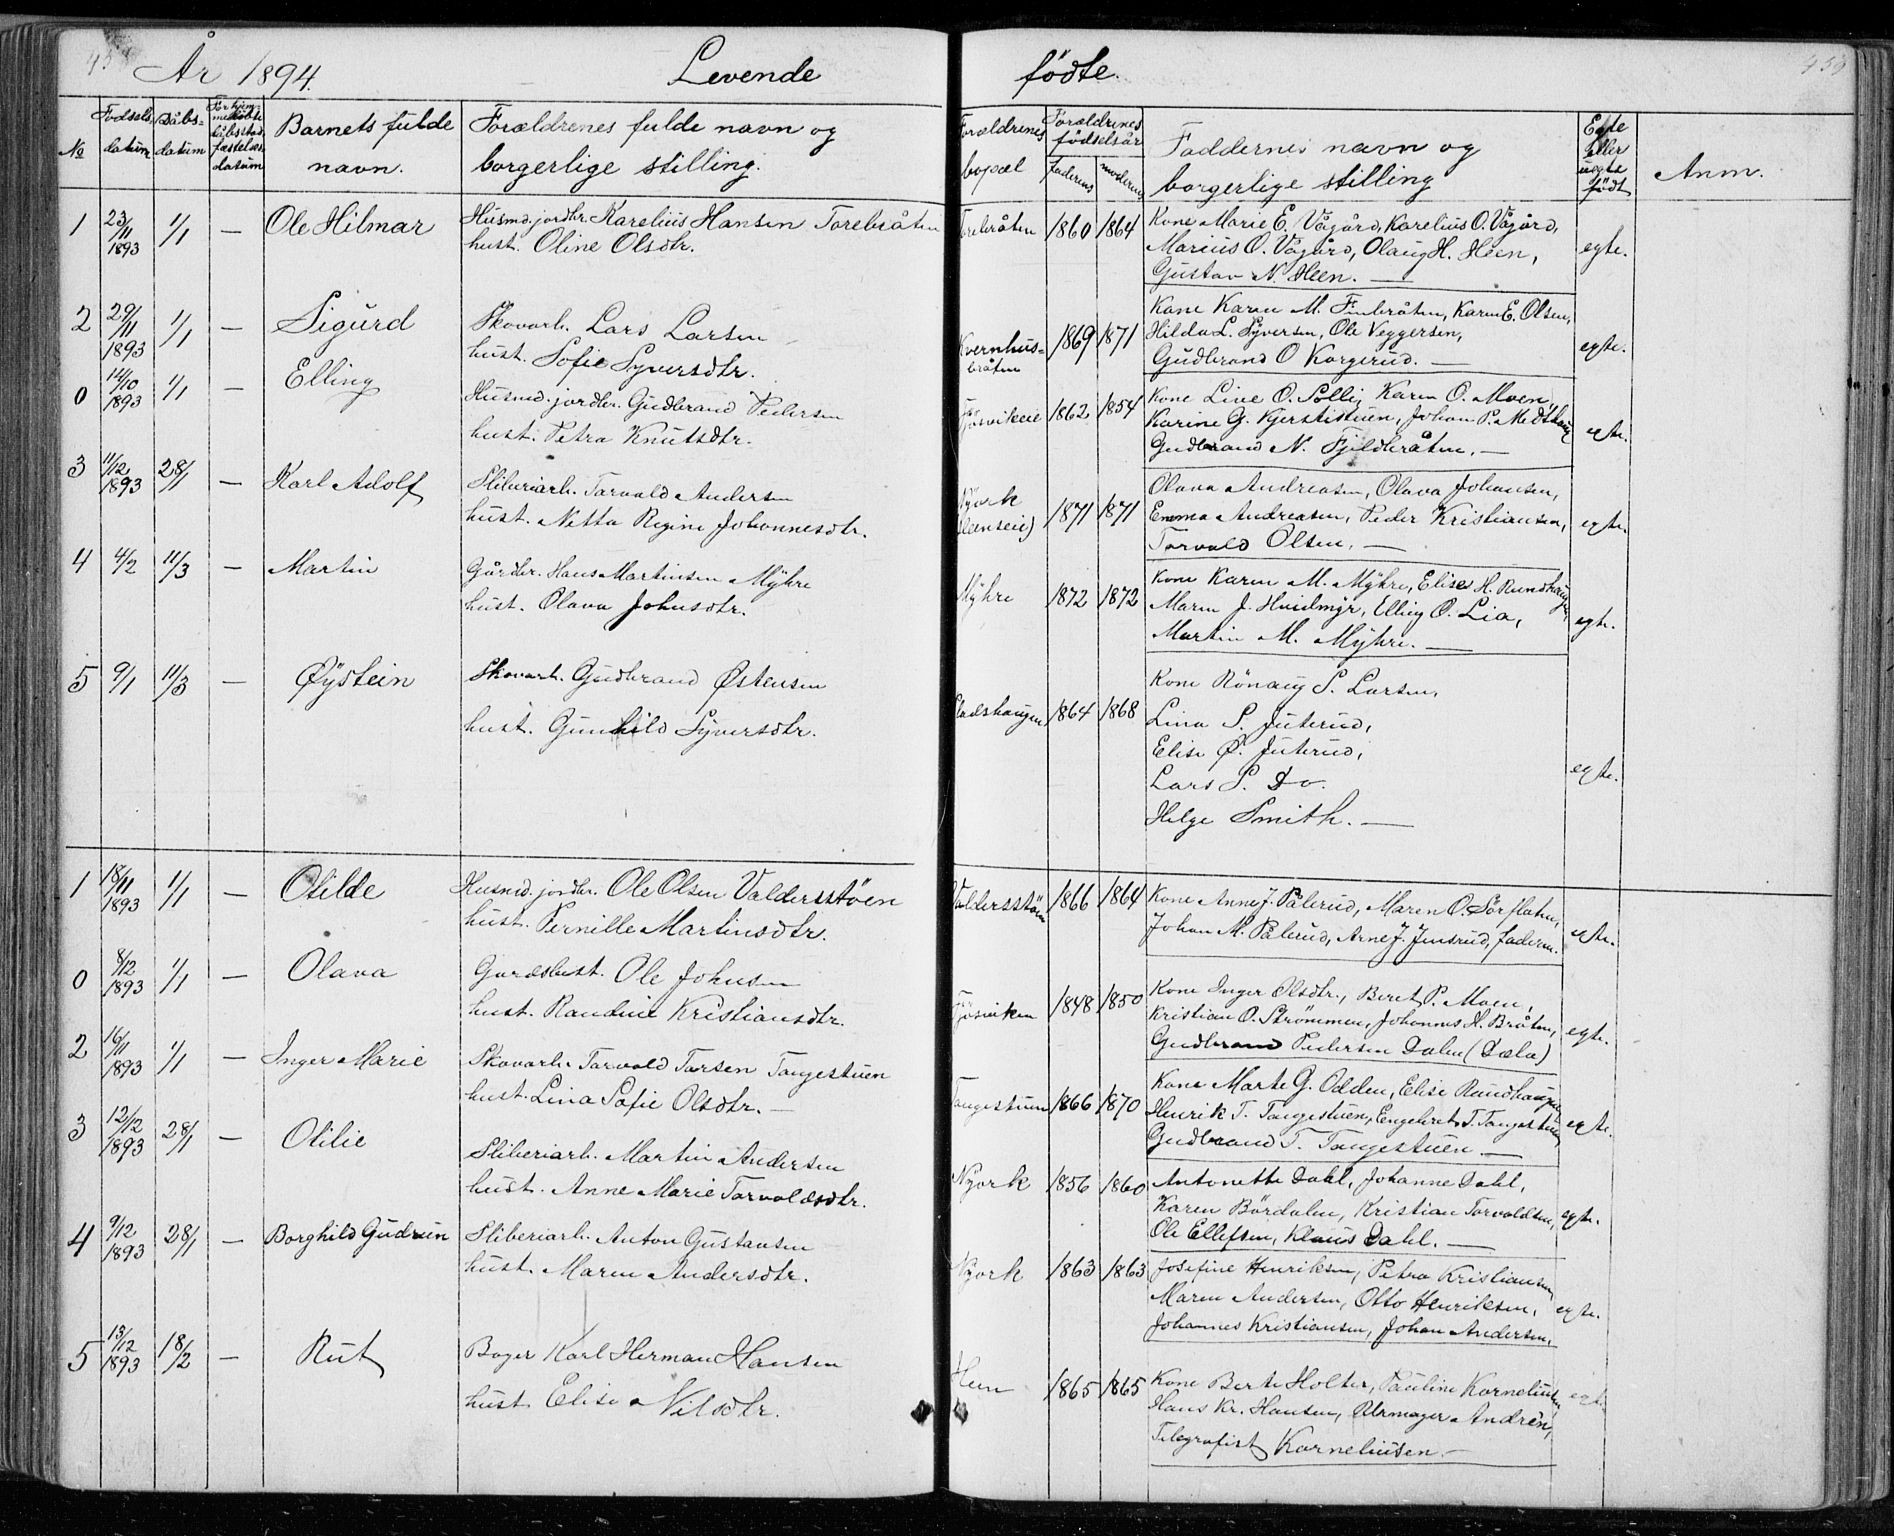 År 1894.
Levende
fødte.
459
№
Fødsels-
datum
Dåbs-
datum
datum
Barnets fulde
navn.
Forældrenes fulde navn og
borgerlige stilling.
Forældrenes
bopæl
Forældrenes
fødselsår
faderens
moderens
Faddernes navn og
borgerlige stilling
Egte
eller
uegte
født
Anm.
1 23/11 1893 1/1 — Ole Hilmar
Husmd. jordbr. Karelius Hansen Torebråten
hust. Oline Olsdtr.
Torebråten 1860 1864
Kone Marie E. Vågård, Karelius O. Vågård,
Marius O. Vågård, Olaug H. Heen,
Gustav N. Heen. —
egte.
2 29/11 1893 1/1 — Sigurd
Skovarb. Lars Larsen
hust. Sofie Syversdtr.
Kvernhus-
bråten 1869 1871
Kone Karen M. Finbråten, Karen E. Olsen,
Hilda L. Syversen, Ole Veggersen,
Gudbrand O Korgerud. —
egte.
0 14/10 1893 1/1 — Elling
Husmd. jordbr. Gudbrand Pedersen
hust. Petra Knutsdtr.
1862 1854
Kone Line O. Solli, Karen O. Moen,
Karine G. Kjerstistuen, Johan P. Medthaug
Gudbrand N. Fjildbråten. —
egte.
3 11/12 1893 28/1 — Karl Adolf
Sliberiarb. Torvald Andersen
hust. Netta Regine Johannesdtr.
Nyork
1871 1871
Olava Andreasen, Olava Johansen,
Emma Andreasen, Peder Kristiansen,
Torvald Olsen. —
egte.
4 4/2 11/3 — Martin
Gårdbr. Hans Martinsen Myhre
hust. Olava Johnsdtr.
Myhre 1872 1872
Kone Karen M. Myhre, Elise H. Rundhaugen,
Maren J. Hvidmyr, Elling O. Lia,
Martin M. Myhre. —
egte.
5 9/1 11/3 — Øystein
Skovarb. Gudbrand Østensen
hust. Gunhild Syversdtr.
1864 1868
Kone Rönaug S. Larsen,
Lina S. Juterud,
Elise Ø. Juterud,
Lars S. Do.
Helge Smith. —
egte.
1 18/11 1893 1/1 — Otilde
Husmd. jordbr. Ole Olsen Valdersstöen
hust. Pernille Martinsdtr.
Valdersstöen 1866 1864
Kone Anne J. Pålerud, Maren O. Sörflaten,
Johan M. Pålerud, Arne J. Jensrud, faderen.
egte.
0 8/12 1893 1/1 — Olava
Ole Johnsen
hust. Randine Kristiansdtr.
Tjösviken 1848 1850
Kone Inger Olsdtr., Beret P. Moen,
Kristian O. Strömmen, Johannes H. Bråten,
Gudbrand Pedersen Dalen (Dæla)
egte.
2 16/11 1893 1/1 — Inger Marie
Skovarb. Torvald Torsen Tangestuen
hust. Lina Sofie Olsdtr. —
Tangestuen 1866 1870
Kone Marte G. Odden, Elise Rundhaugen
Henrik T. Tangestuen, Engebret T. Tangestuen
Gudbrand T. Tangestuen —
egte.
3 12/12 1893 28/1 — Otilie
Sliberiarb. Martin Andersen
hust. Anne Marie Torvaldsdtr.
Nyork 1856 1860
Antonette Dahl, Johanne Dahl,
Karen Bördalen, Kristian Torvaldsen,
Ole Ellefsen, Klaus Dahl. —
egte.
4 9/12 1893 28/1 — Borghild Gudrun
Sliberiarb. Anton Gustavsen
hust. Maren Andersdtr.
Nyork 1863 1863
Josefine Henriksen, Petra Kristiansen,
Maren Andersen, Otto Henriksen,
Johannes Kristiansen, Johan Andersen.
egte.
5 13/12 1893 18/2 — Rut
Bager Karl Herman Hansen
hust. Elise Nilsdtr.
Heen 1865 1865
Kone Berte Holter, Pauline Korneliusen
Hans Kr. Hansen, Urmager Andrèn,
Telegrafist Korneliusen. —
egte.